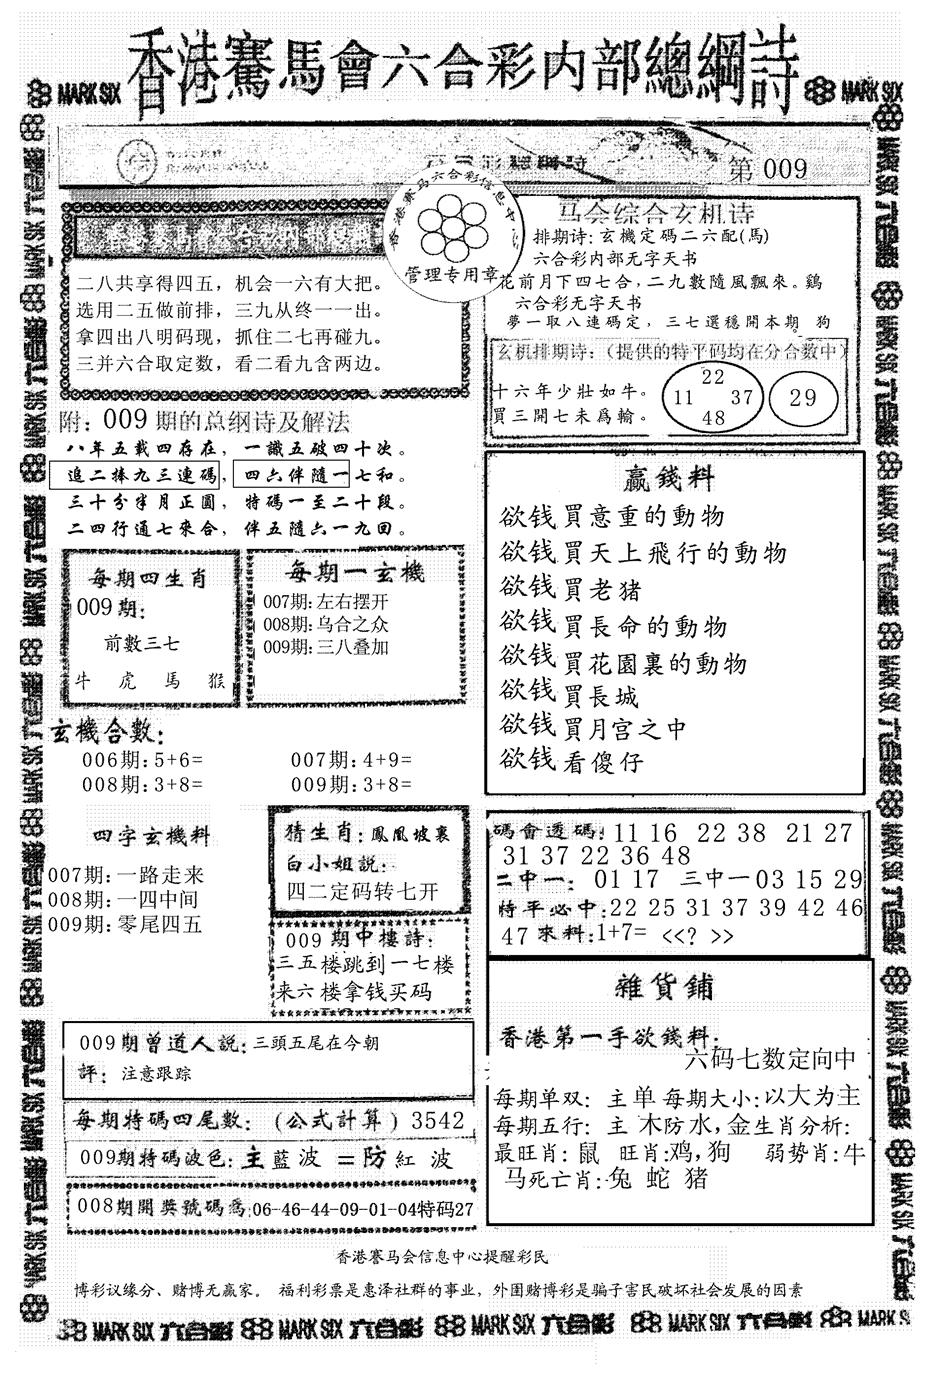 香港賽馬會六合彩内部總綱詩
MARK SIX
MARK SIX
第 009
香港赛马六合彩信息中心
管理专用章
二八共享得四五，机会一六有大把。
选用二五做前排，三九从终一一出。
拿四出八明码现，抓住二七再碰九。
三并六合取定数，看二看九含两边。
马会综合玄机诗
排期诗：玄機定码二六配(馬)
六合彩内部无字天书
花前月下四七合，二九數隨風飄來。鷄
六合彩无字天书
夢一取八連碼定，三七選穩開本期 狗
玄机排期诗：（提供的特平码均在分合数中）
十六年少壯如牛。
買三開七未爲輸。
22
11 37
48
29
附：009期的总纲诗及解法
八年五載四存在，一識五破四十次。
追二捧九三連碼，四六伴隨一七和。
三十分半月正圓，特碼一至二十段。
二四行通七來合，伴五隨六一九回。
每期四生肖
009期：
前數三七
牛 虎 馬 猴
每期一玄機
007期：左右摆开
008期：乌合之众
009期：三八叠加
贏錢料
欲钱買意重的動物
欲钱買天上飛行的動物
欲钱買老猪
欲钱買長命的動物
欲钱買花園裏的動物
欲钱買長城
欲钱買月宫之中
欲钱看傻仔
玄機合數：
006期：5+6= 007期：4+9=
008期：3+8= 009期：3+8=
四字玄機料
007期：一路走来
008期：一四中间
009期：零尾四五
猜生肖：鳳凰坡裏
白小姐説：
四二定码转七开
009期中樓詩：
三五楼跳到一七楼
来六楼拿钱买码
碼會透碼：11 16 22 38 21 27
31 37 22 36 48
二中一：01 17 三中一03 15 29
特平必中：22 25 31 37 39 42 46
47 來料：1+7= <<? >>
雜貨鋪
香港第一手欲錢料：
六码七数定向中
每期单双：主单 每期大小：以大为主
每期五行：主 木防水，金生肖分析：
最旺肖：鼠 旺肖：鸡，狗 弱势肖：牛
马死亡肖：兔 蛇 猪
009期曾道人説：三頭五尾在今朝
評：注意跟踪
每期特碼四尾數：（公式計算）3542
009期特碼波色：主藍波=防紅波
008期開獎號碼爲：06-46-44-09-01-04特码27
香港赛马会信息中心提醒彩民
博彩议缘分、赌博无赢家。 福利彩票是惠泽社群的事业，外围赌博彩是骗子害民破坏社会发展的因素
MARK SIX 六合彩 MARK SIX 六合彩 MARK SIX 六合彩 MARK SIX 六合彩 MARK SIX